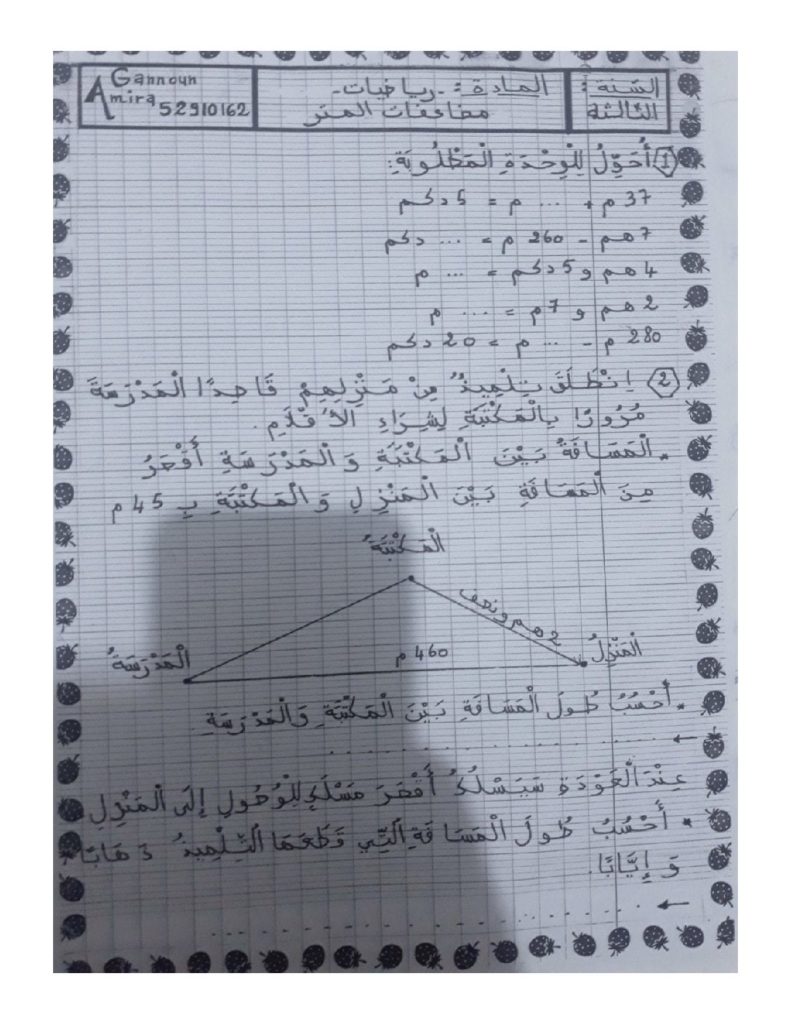 السنة : الثالثة
المادة : - رياضيات -
مضاعفات المتر
Gannoun
Amira 52910162
1) أُحَوِّلُ لِلْوِحْدَةِ الْمَطْلُوبَةِ:
37 م + ... م = 5 دكم
7 هم - 260 م = ... دكم
4 هم و 5 دكم = ... م
2 هم و 7 م = .... م
280 م - ... م = 20 دكم
2) اِنْطَلَقَ تِلْمِيذٌ مِنْ مَنْزِلِهِمْ قَاصِدًا الْمَدْرَسَةَ
مُرُورًا بِالْمَكْتَبَةِ لِشِرَاءِ الْأَقْلَامِ.
* الْمَسَافَةُ بَيْنَ الْمَكْتَبَةِ وَالْمَدْرَسَةِ أَقْصَرُ
مِنَ الْمَسَافَةِ بَيْنَ الْمَنْزِلِ وَالْمَكْتَبَةِ بِ 45 م
الْمَكْتَبَةُ
2 هم ونصف
الْمَنْزِلُ
460 م
الْمَدْرَسَةُ
* أَحْسُبُ طُولَ الْمَسَافَةِ بَيْنَ الْمَكْتَبَةِ وَالْمَدْرَسَةِ
← ....................
عِنْدَ الْعَوْدَةِ سَيَسْلُكُ أَقْصَرَ مَسْلَكٍ لِلْوُصُولِ إِلَى الْمَنْزِلِ
* أَحْسُبُ طُولَ الْمَسَافَةِ الَّتِي قَطَعَهَا التِّلْمِيذُ ذَهَابًا
وَ إِيَّابًا.
← ....................